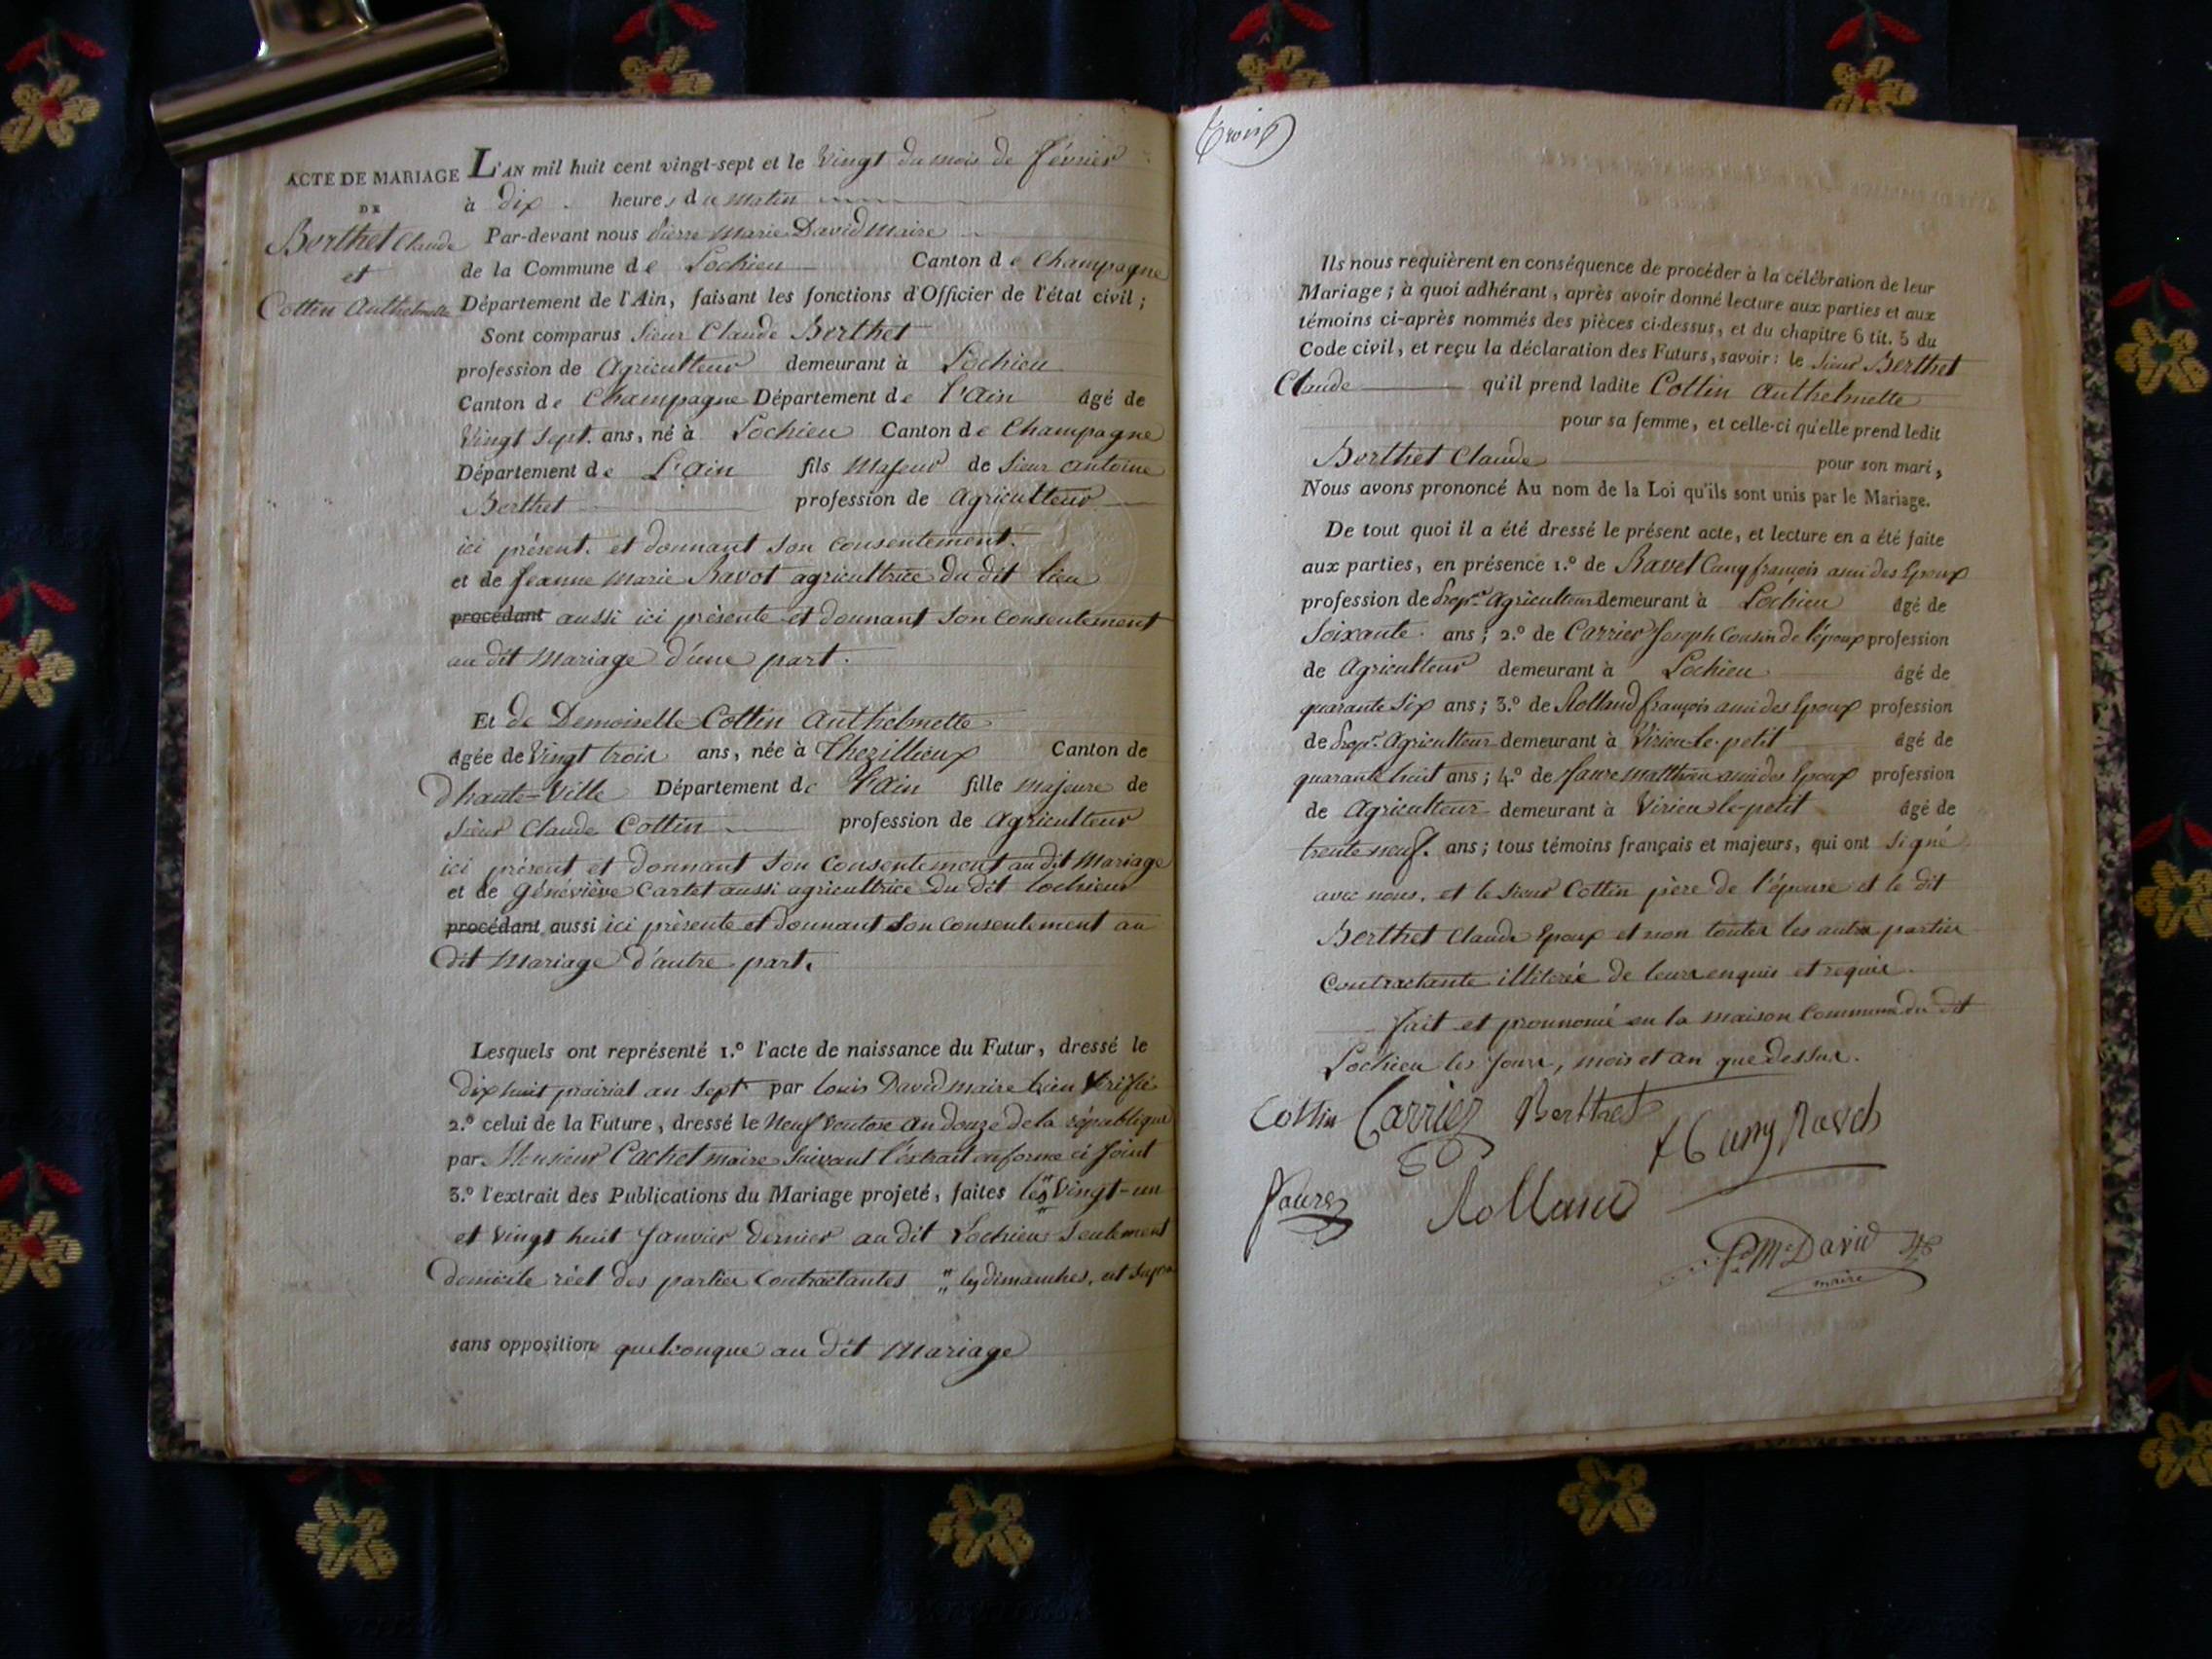 ACTE DE MARIAGE
DE
Berthet Claude
et
Cottin Anthelmette
L'AN mil huit cent vingt-sept et le Vingt du mois de février
à dix heures du matin
Par-devant nous Pierre Marie David Maire
de la Commune de Lochieu Canton de Champagne
Département de l'Ain, faisant les fonctions d'Officier de l'état civil ;
Sont comparus Sieur Claude Berthet
profession de Agriculteur demeurant à Lochieu
Canton de Champagne Département de l'Ain âgé de
Vingt Sept ans, né à Lochieu Canton de Champagne
Département de L'Ain fils Majeur de Sieur Antoine
Berthet profession de Agriculteur
ici présent et donnant son consentement.
et de Jeanne Marie Ravot agricultrice du dit lieu
procédant aussi ici présente et donnant son consentement
au dit Mariage d'une part.
Et de Demoiselle Cottin Anthelmette
âgée de Vingt trois ans, née à Thezillieux Canton de
d'haute=Ville Département de l'Ain fille majeure de
Sieur Claude Cottin profession de Agriculteur
ici présent et donnant son consentement au dit Mariage
et de Généviève Cartet aussi agricultrice du dit Lochieu
procédant aussi ici présente et donnant son consentement au
dit Mariage d'autre part.
Lesquels ont représenté 1.º l'acte de naissance du Futur, dressé le
dix huit prairial an sept par Louis David maire bien vérifié
2.º celui de la Future, dressé le Neuf Ventose an douze de la république
par Monsieur Cachet maire Suivant l'éxtrait en forme ci Joint
3.º l'extrait des Publications du Mariage projeté, faites les " Vingt-un
et Vingt huit Janvier dernier au dit Lochieu Seulement
domicile réel des parties Contractantes " les dimanches, est
sans opposition quelconque au dit Mariage
Trois
Ils nous requièrent en conséquence de procéder à la célébration de leur
Mariage ; à quoi adhérant, après avoir donné lecture aux parties et aux
témoins ci-après nommés des pièces ci-dessus, et du chapitre 6 tit. 5 du
Code civil, et reçu la déclaration des Futurs, savoir : le Sieur Berthet
Claude qu'il prend ladite Cottin Anthelmette
pour sa femme, et celle-ci qu'elle prend ledit
Berthet Claude pour son mari,
Nous avons prononcé Au nom de la Loi qu'ils sont unis par le Mariage.
De tout quoi il a été dressé le présent acte, et lecture en a été faite
aux parties, en présence 1.º de Ravet Cuny françois ami des Epoux
profession de Propre Agriculteur demeurant à Lochieu âgé de
Soixante ans ; 2.º de Carrier Joseph Cousin de l'époux profession
de Agriculteur demeurant à Lochieu âgé de
quarante Six ans ; 3.º de Rolland françois ami des Epoux profession
de Propre Agriculteur demeurant à Virieu-le-petit âgé de
quarante huit ans ; 4.º de faure matthieu ami des Epoux profession
de Agriculteur demeurant à Virieu le-petit âgé de
trente neuf ans ; tous témoins français et majeurs, qui ont Signé
avec nous, et le Sieur Cottin père de l'épouse et le dit
Berthet Claude Epoux et non toutes les autres parties
Contractante illiterée de leurs enquis et requis.
fait et prononcé en la maison Commune du dit
Lochieu les Jours, mois et an que dessus.
Cottin Carrier Berthet
f Cuny Ravet
faure Rolland
P. M. David
maire